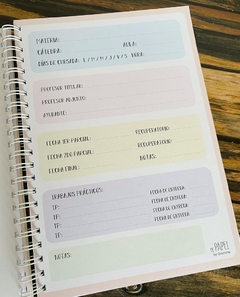 MATERIA:
CÁTEDRA: AULA:
DÍAS DE CURSADA: L / M / M / J / V / S HORA:
PROFESOR TITULAR:
PROFESOR ADJUNTO:
AYUDANTE:
FECHA 1ER PARCIAL: RECUPERATORIO:
FECHA 2DO PARCIAL: RECUPERATORIO:
FECHA FINAL: NOTAS:
TRABAJOS PRÁCTICOS: FECHA DE ENTREGA
TP: FECHA DE ENTREGA
TP: FECHA DE ENTREGA
TP: FECHA DE ENTREGA
TP:
NOTAS:
PAPEL